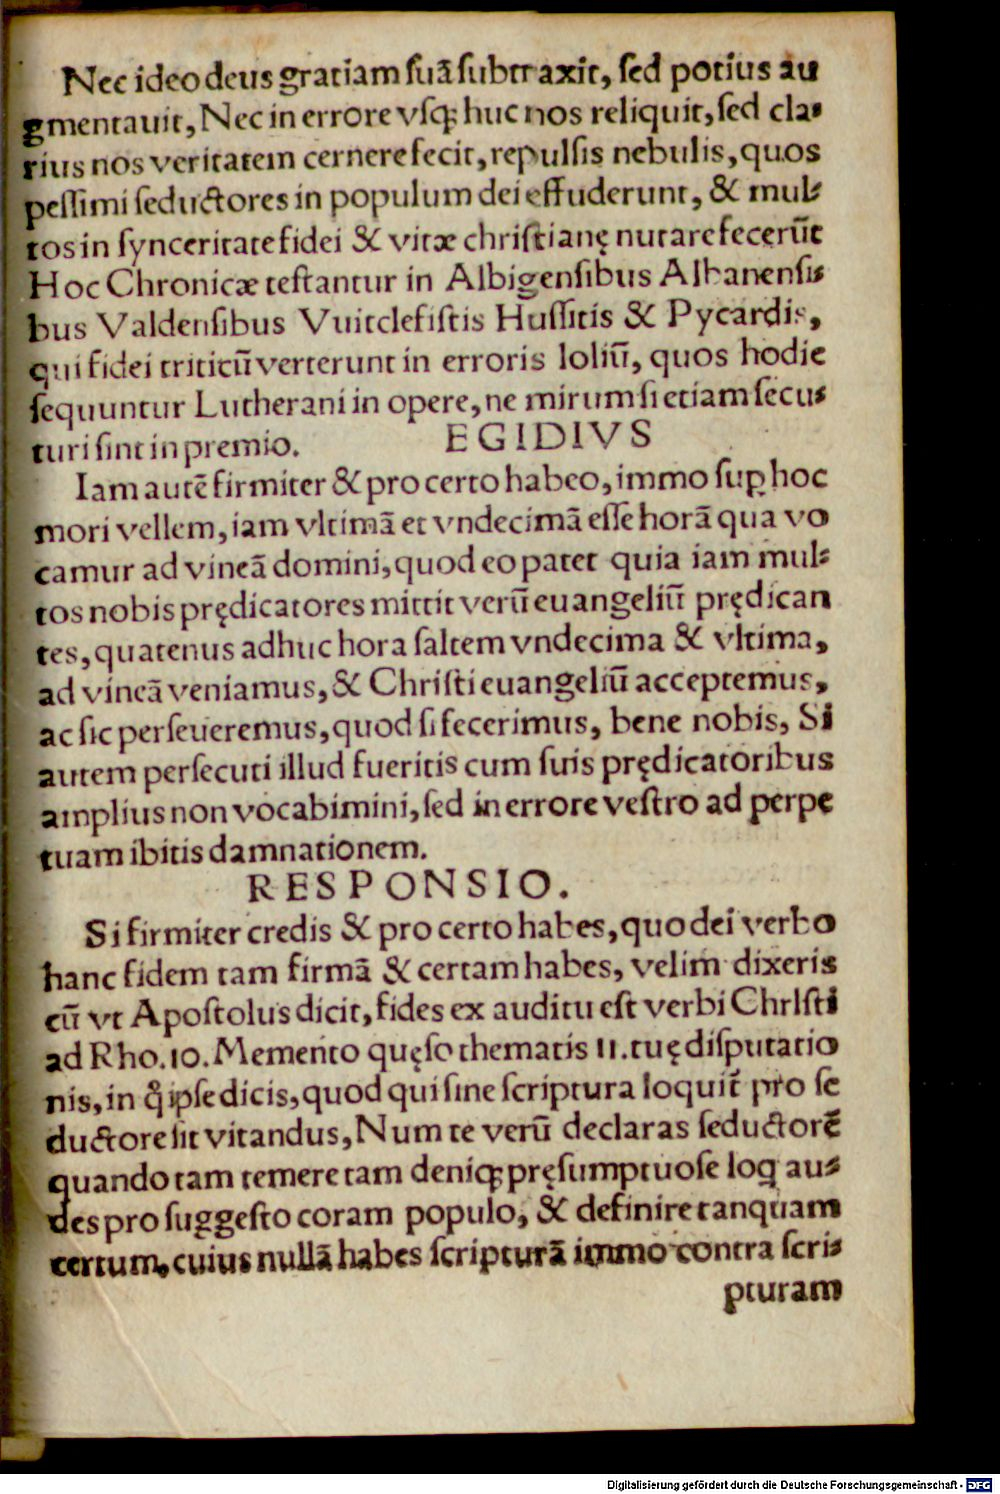 Nec ideo deus gratiam suā subtraxit, sed potius au
gmentauit, Nec in errore vsq; huc nos reliquit, sed cla-
rius nos veritatem cernere fecit, repulsis nebulis, quos
pessimi seductores in populum dei effuderunt, & mul-
tos in synceritate fidei & vitæ christianę nutare fecerūt
Hoc Chronicæ testantur in Albigensibus Albanensi-
bus Valdensibus Vuitclefistis Hussitis & Pycardis,
qui fidei triticū verterunt in erroris loliū, quos hodie
sequuntur Lutherani in opere, ne mirum si etiam secu-
turi sint in premio. EGIDIVS
Iam autē firmiter & pro certo habeo, immo suꝑ hoc
mori vellem, iam vltimā et vndecimā esse horā qua vo
camur ad vineā domini, quod eo patet quia iam mul-
tos nobis prędicatores mittit verū euangeliū prędican
tes, quatenus adhuc hora saltem vndecima & vltima,
ad vineā veniamus, & Christi euangeliū acceptemus,
ac sic perseueremus, quod si fecerimus, bene nobis, Si
autem persecuti illud fueritis cum suis prędicatoribus
amplius non vocabimini, sed in errore vestro ad perpe
tuam ibitis damnationem.
RESPONSIO.
Si firmiter credis & pro certo habes, quo dei verbo
hanc fidem tam firmā & certam habes, velim dixeris
cū vt Apostolus dicit, fides ex auditu est verbi ChrIsti
ad Rho.10. Memento quęso thematis 11. tuę disputatio
nis, in q̊ ipse dicis, quod qui sine scriptura loquit̄ pro se
ductore sit vitandus, Num te verū declaras seductorē
quando tam temere tam deniq; pręsumptuose loq au-
des pro suggesto coram populo, & definire tanquam
certum, cuius nullā habes scripturā immo contra scri-
pturam
Digitalisierung gefördert durch die Deutsche Forschungsgemeinschaft - DFG